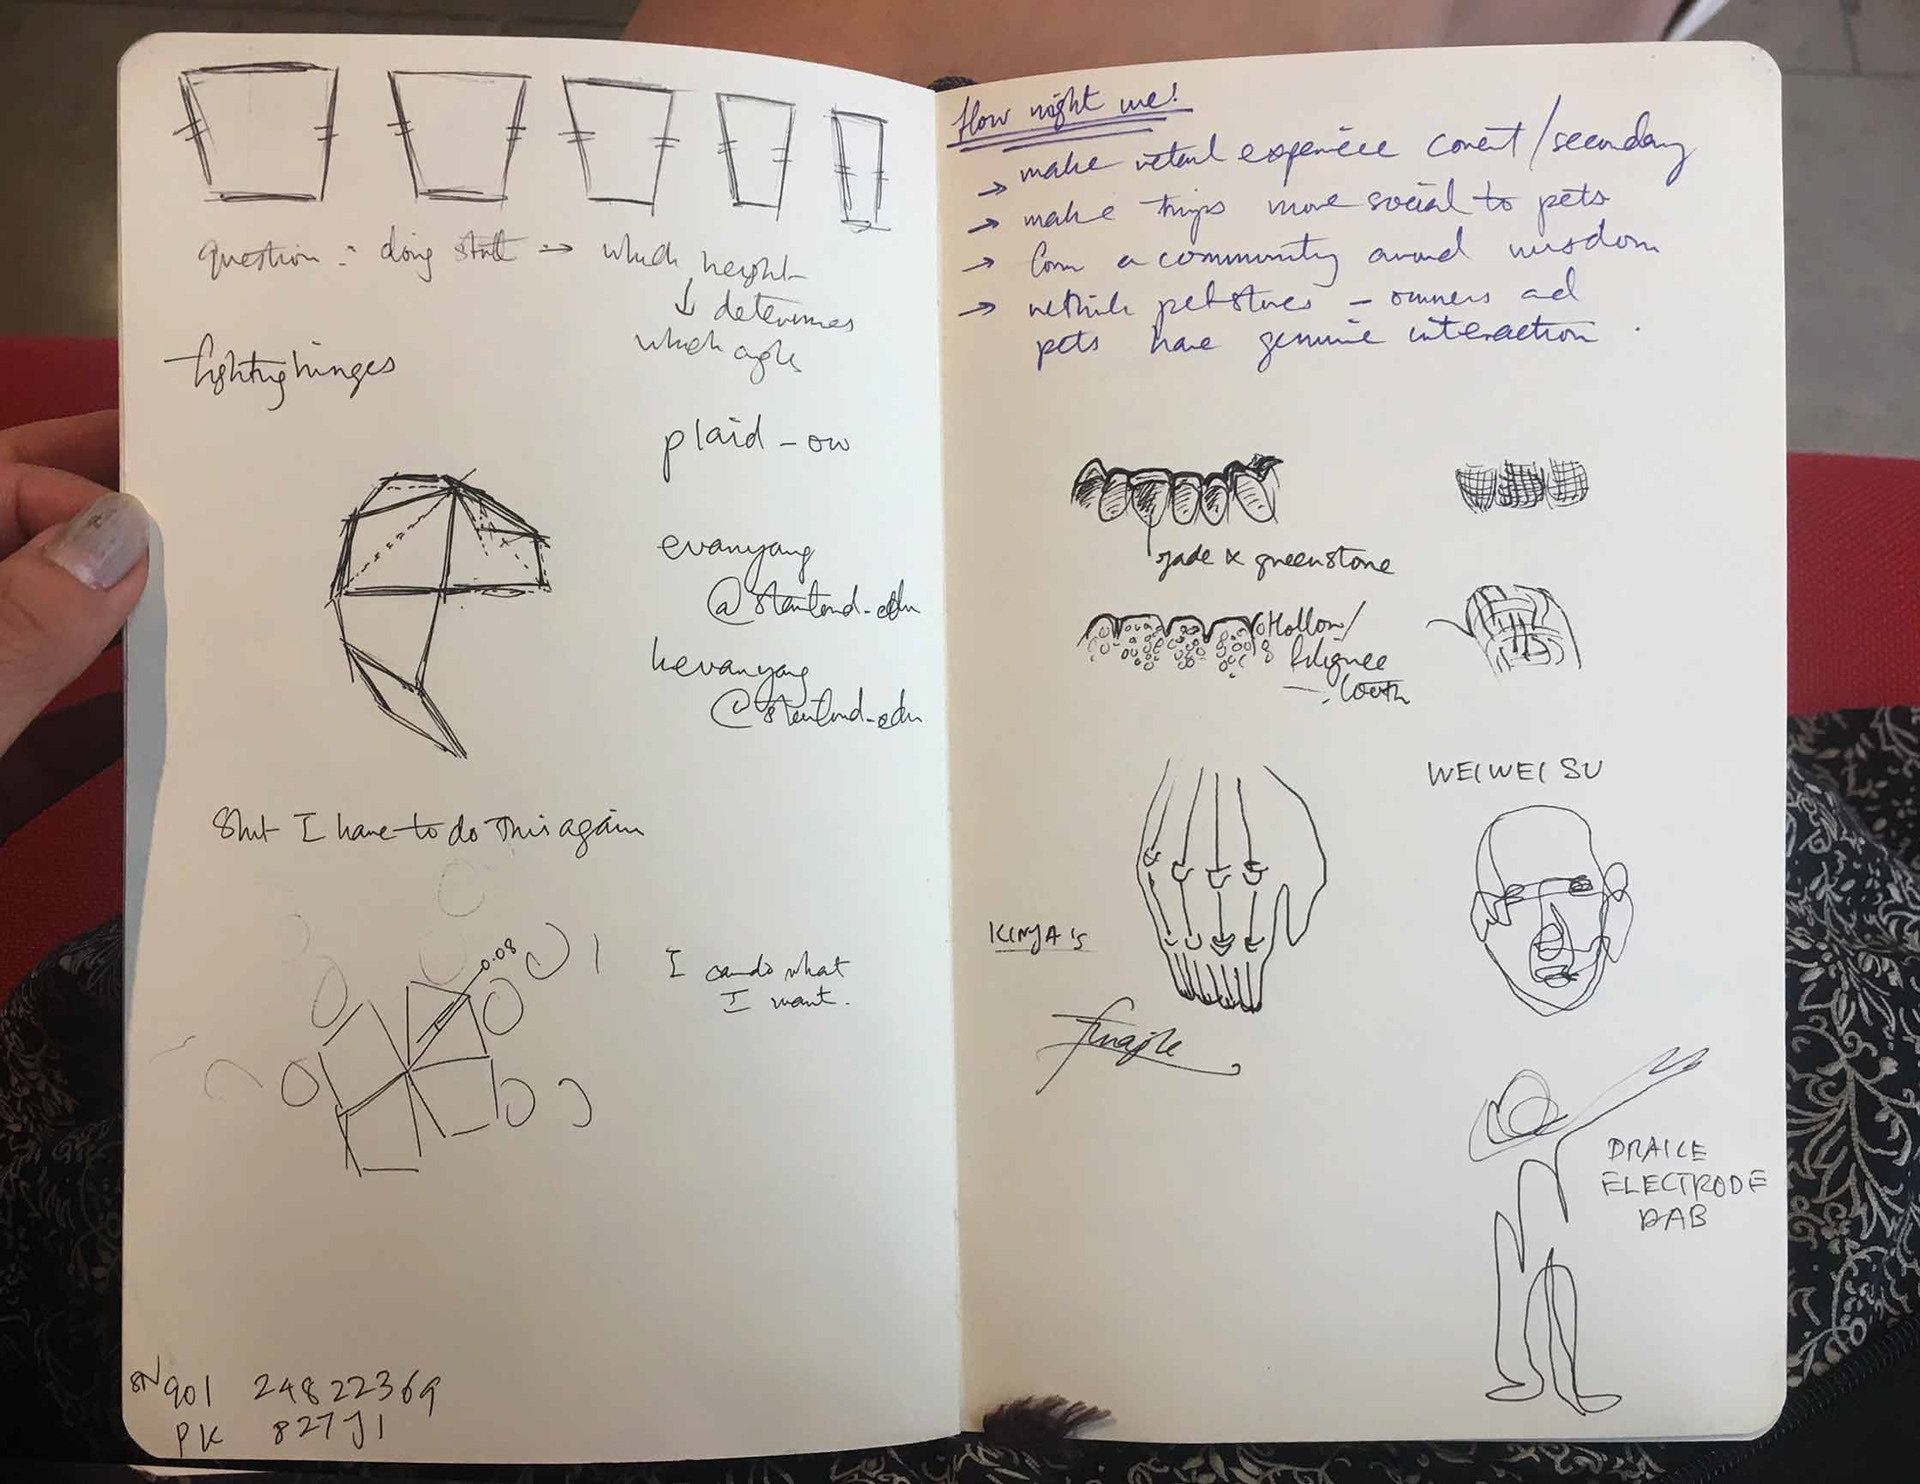 question: doing still → which height
↓ determines
which angle
fighting hinges
plaid - ow
evanyang
@stanford.edu
kevanyang
@stanford.edu
Shit I have to do this again
0.08
I can do what
I want.
SN 901 24822369
PK 827J1
How might we!
→ make retail experience covert/secondary
→ make things more social to pets
→ form a community around wisdom
→ rethink petstores - owners and
pets have genuine interaction.
jade x greenstone
Hollow/
filigree
tooth
WEIWEI SU
KINYA'S
DRAKE
ELECTRODE
DAB